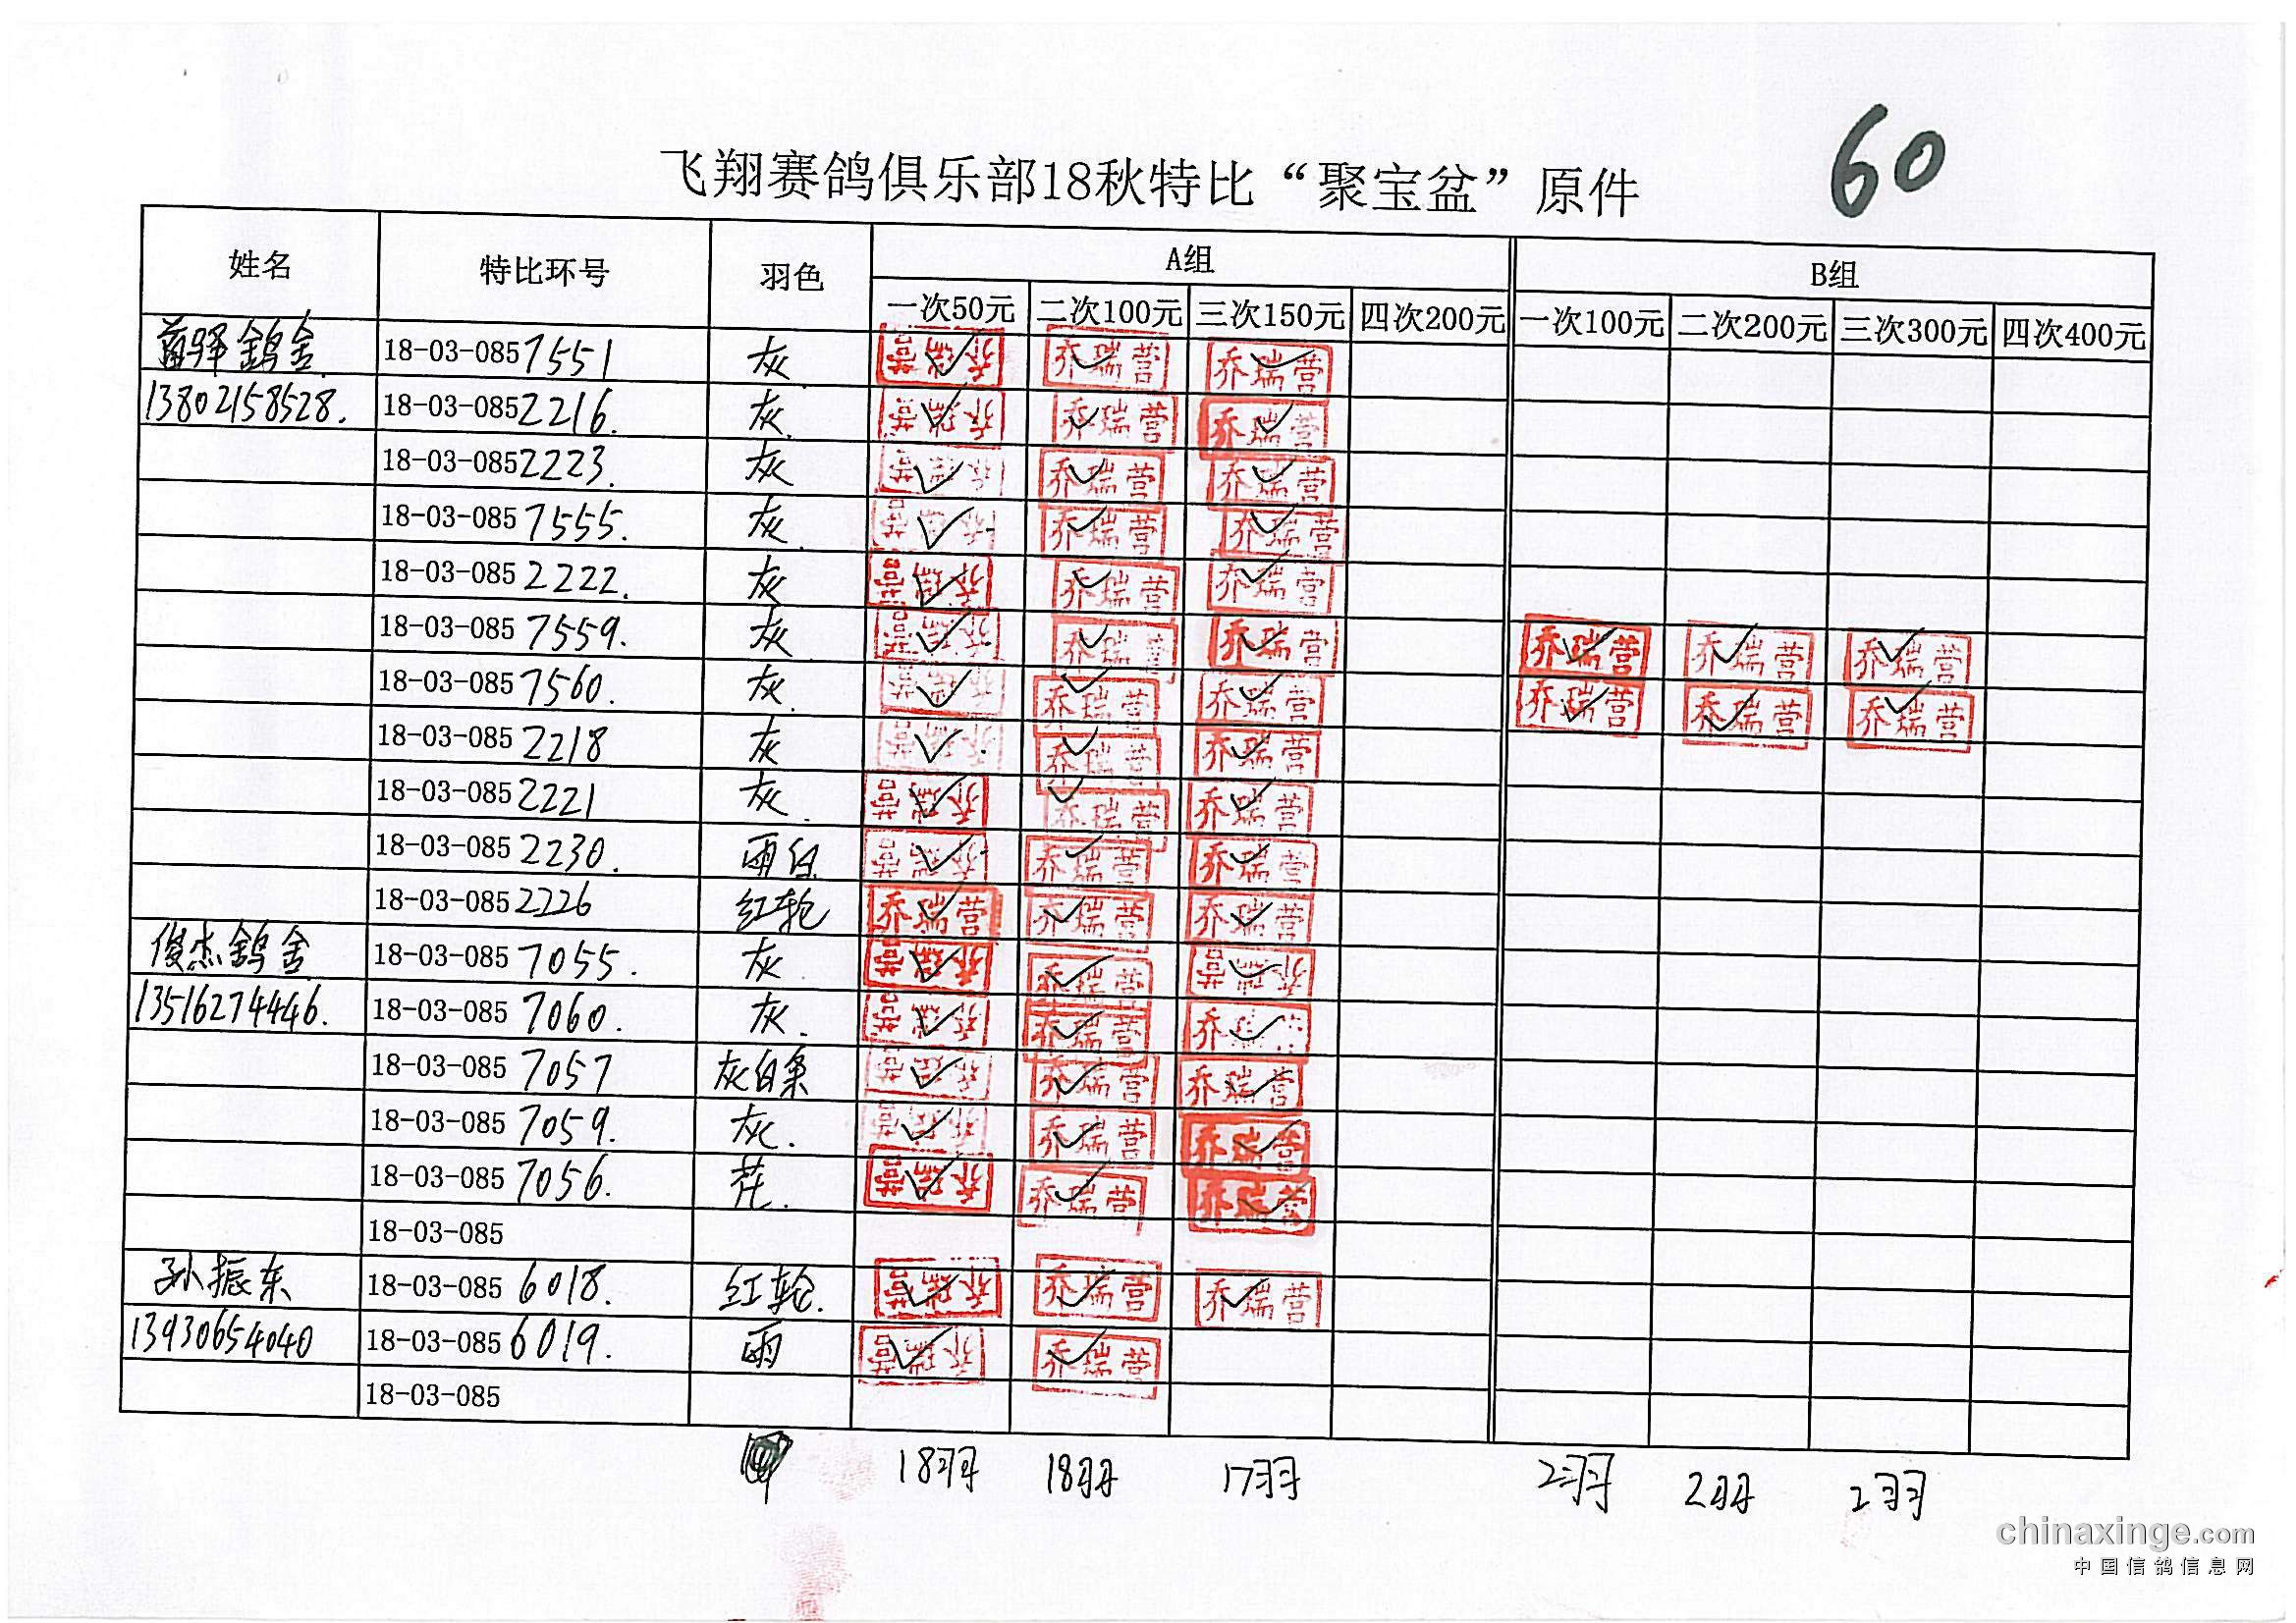 60
飞翔赛鸽俱乐部18秋特比“聚宝盆”原件
姓名 特比环号 羽色 A组 B组
一次50元 二次100元 三次150元 四次200元 一次100元 二次200元 三次300元 四次400元
鸽舍 18-03-0857551 灰 乔瑞营 乔瑞营 乔瑞营
13802158528. 18-03-0852216. 灰. 乔瑞营 乔瑞营 乔瑞营
18-03-0852223. 灰 乔瑞营 乔瑞营 乔瑞营
18-03-0857555. 灰. 乔瑞营 乔瑞营 乔瑞营
18-03-0852222. 灰 乔瑞营 乔瑞营 乔瑞营
18-03-0857559. 灰 乔瑞营 乔瑞营 乔瑞营 乔瑞营 乔瑞营 乔瑞营
18-03-0857560. 灰. 乔瑞营 乔瑞营 乔瑞营 乔瑞营 乔瑞营 乔瑞营
18-03-0852218 灰 乔瑞营 乔瑞营 乔瑞营
18-03-0852221 灰. 乔瑞营 乔瑞营 乔瑞营
18-03-0852230. 雨白. 乔瑞营 乔瑞营 乔瑞营
18-03-0852226 红轮 乔瑞营 乔瑞营 乔瑞营
俊杰鸽舍 18-03-0857055. 灰. 乔瑞营 乔瑞营 乔瑞营
13516274446. 18-03-0857060. 灰. 乔瑞营 乔瑞营 乔
18-03-0857057 灰白条 乔瑞营 乔瑞营 乔瑞营
18-03-0857059. 灰. 乔瑞营 乔瑞营 乔瑞营
18-03-0857056. 花. 乔瑞营 乔瑞营 乔瑞营
18-03-085
孙振东 18-03-0856018. 红轮. 乔瑞营 乔瑞营 乔瑞营
13930654040 18-03-0856019. 雨 乔瑞营 乔瑞营
18-03-085
18羽 18羽 17羽 2羽 2羽 2羽
chinaxinge.com
中国信鸽信息网